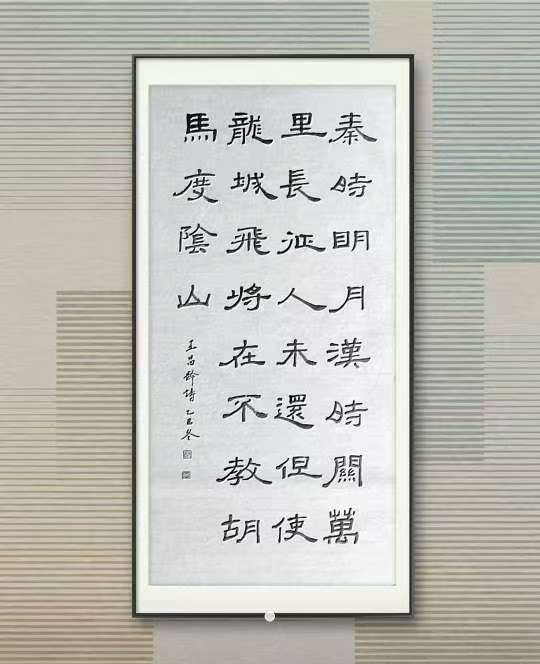 秦時明月漢時關萬
里長征人未還但使
龍城飛將在不教胡
馬度陰山
王昌齡詩乙巳冬